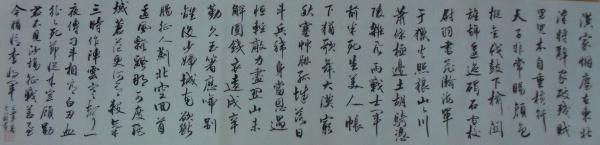 漢家煙塵在東北
漢將辭家破殘賊
男兒本自重橫行
天子非常賜顏色
摐金伐鼓下榆關
旌旆逶迤碣石間校
尉羽書飛瀚海單
于獵火照狼山山川
蕭條極邊土胡騎憑
陵雜風雨戰士軍
前半死生美人帳
下猶歌舞大漠窮
秋塞草腓孤城落日
鬥兵稀身當恩遇
恆輕敵力盡關山未
解圍鐵衣遠戍辛
勤久玉箸應啼別
離後少婦城南欲斷
腸征人薊北空回首
邊風飄飄那可度絕
域蒼茫更何有殺氣
三時作陣雲寒聲一
夜傳刁斗相看白刃血
紛紛死節從來豈顧勳
君不見沙場征戰苦至
今猶憶李將軍